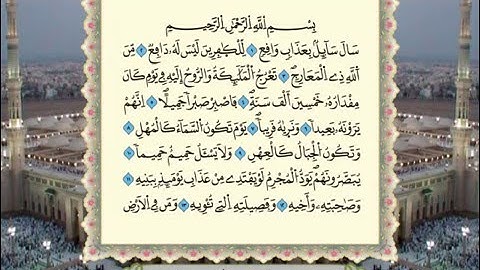 بِسْمِ اللَّهِ الرَّحْمَٰنِ الرَّحِيمِ
سَأَلَ سَآئِلٌۢ بِعَذَابٍ وَاقِعٍ ١ لِّلْكَٰفِرِينَ لَيْسَ لَهُۥ دَافِعٌ ٢ مِّنَ
ٱللَّهِ ذِى ٱلْمَعَارِجِ ٣ تَعْرُجُ ٱلْمَلَٰٓئِكَةُ وَٱلرُّوحُ إِلَيْهِ فِى يَوْمٍ كَانَ
مِقْدَارُهُۥ خَمْسِينَ أَلْفَ سَنَةٍ ٤ فَٱصْبِرْ صَبْرًا جَمِيلًا ٥ إِنَّهُمْ
يَرَوْنَهُۥ بَعِيدًا ٦ وَنَرَىٰهُ قَرِيبًا ٧ يَوْمَ تَكُونُ ٱلسَّمَآءُ كَٱلْمُهْلِ ٨
وَتَكُونُ ٱلْجِبَالُ كَٱلْعِهْنِ ٩ وَلَا يَسْـَٔلُ حَمِيمٌ حَمِيمًا ١٠
يُبَصَّرُونَهُمْ يَوَدُّ ٱلْمُجْرِمُ لَوْ يَفْتَدِى مِنْ عَذَابِ يَوْمِئِذٍۭ بِبَنِيهِ ١١
وَصَٰحِبَتِهِۦ وَأَخِيهِ ١٢ وَفَصِيلَتِهِ ٱلَّتِى تُـْٔوِيهِ ١٣ وَمَن فِى ٱلْأَرْضِ